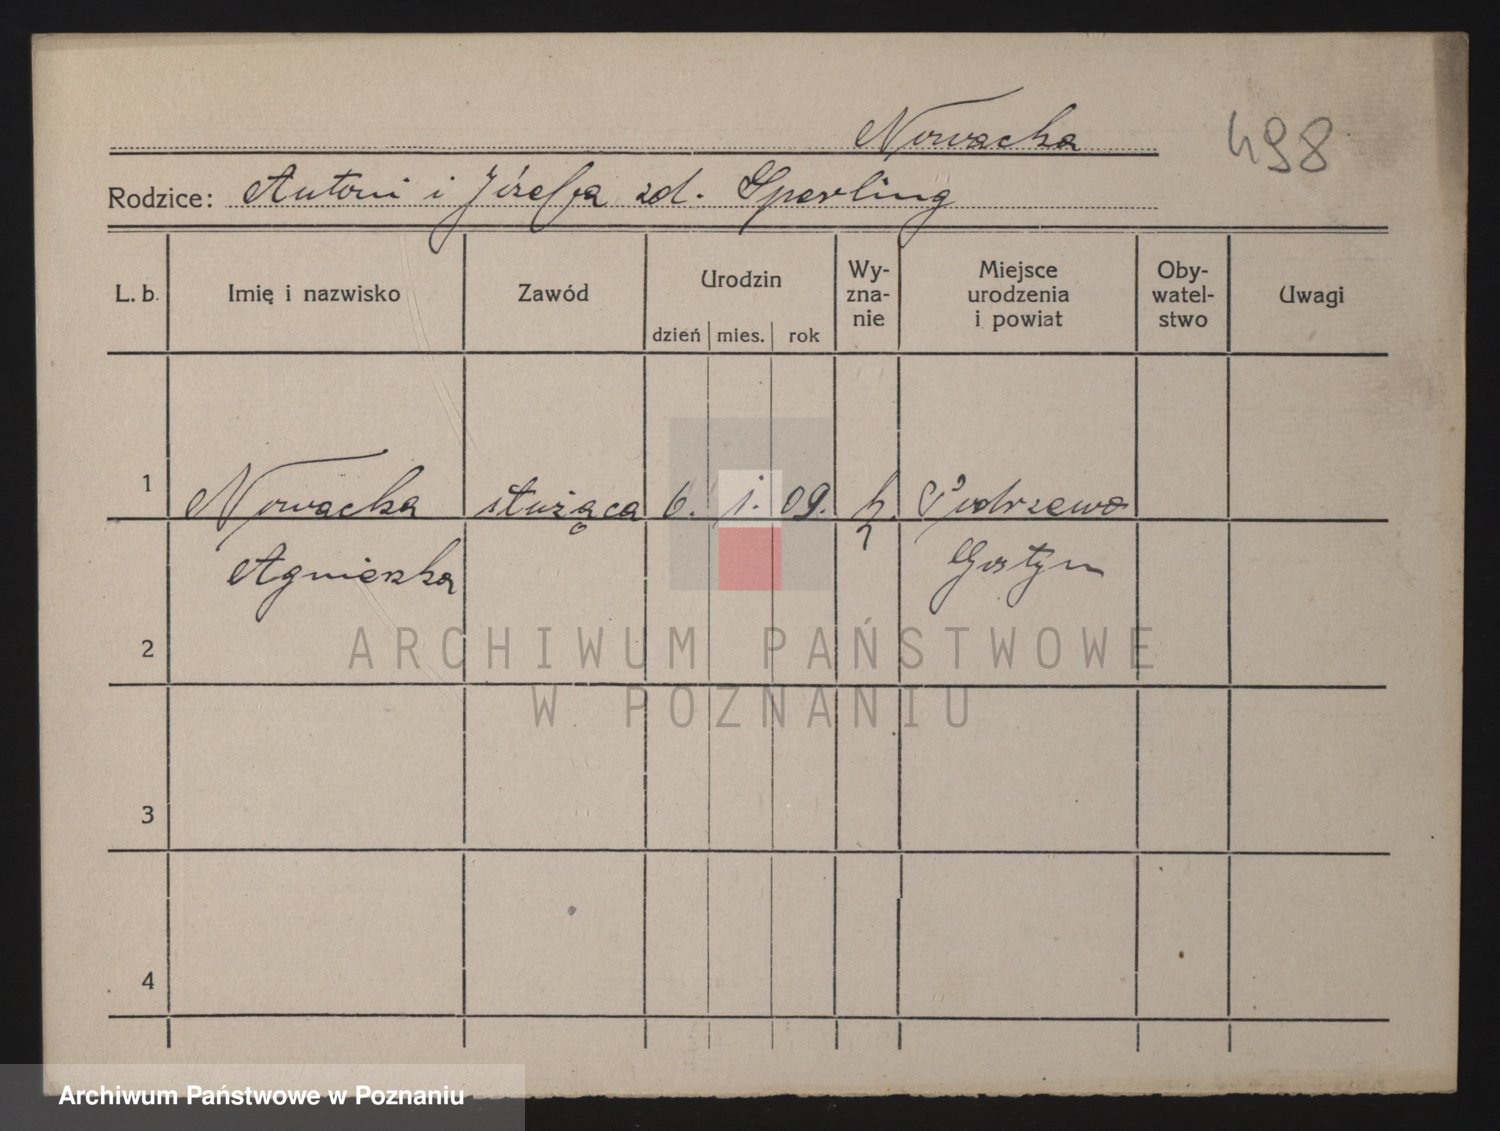 Nowacka
498
Rodzice: Antoni i Józefa zd. Sperling
L. b. Imię i nazwisko Zawód Urodzin dzień mies. rok Wy-zna-nie Miejsce urodzenia i powiat Oby-watel-stwo Uwagi
1 Nowacka służąca 6. 1. 09. k. Podrzewo
Agnieszka Gostyn
2
ARCHIWUM PAŃSTWOWE
W POZNANIU
3
4
Archiwum Państwowe w Poznaniu